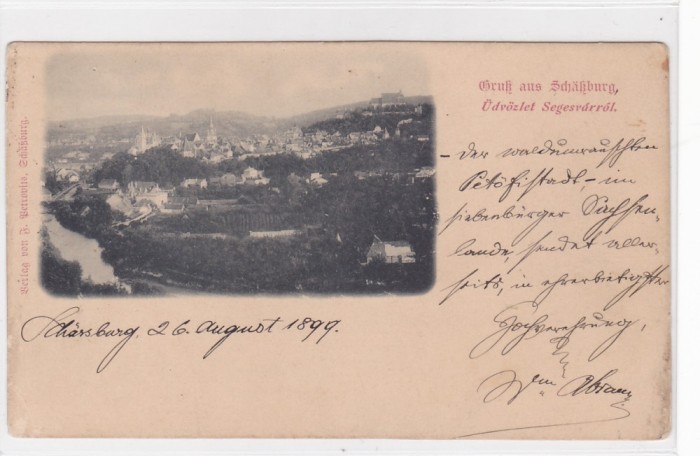 Gruß aus Schäßburg,
Üdvözlet Segesvárról.
- Der waldumrauschten
Petöfistadt, - im
siebenbürger Sachsen-
lande, sendet aller-
seits, in ehrerbietigster
Hochverehrung,
Wm Abram
Schässburg, 26. August 1899.
Verlag von F. Petrovits, Schäßburg.